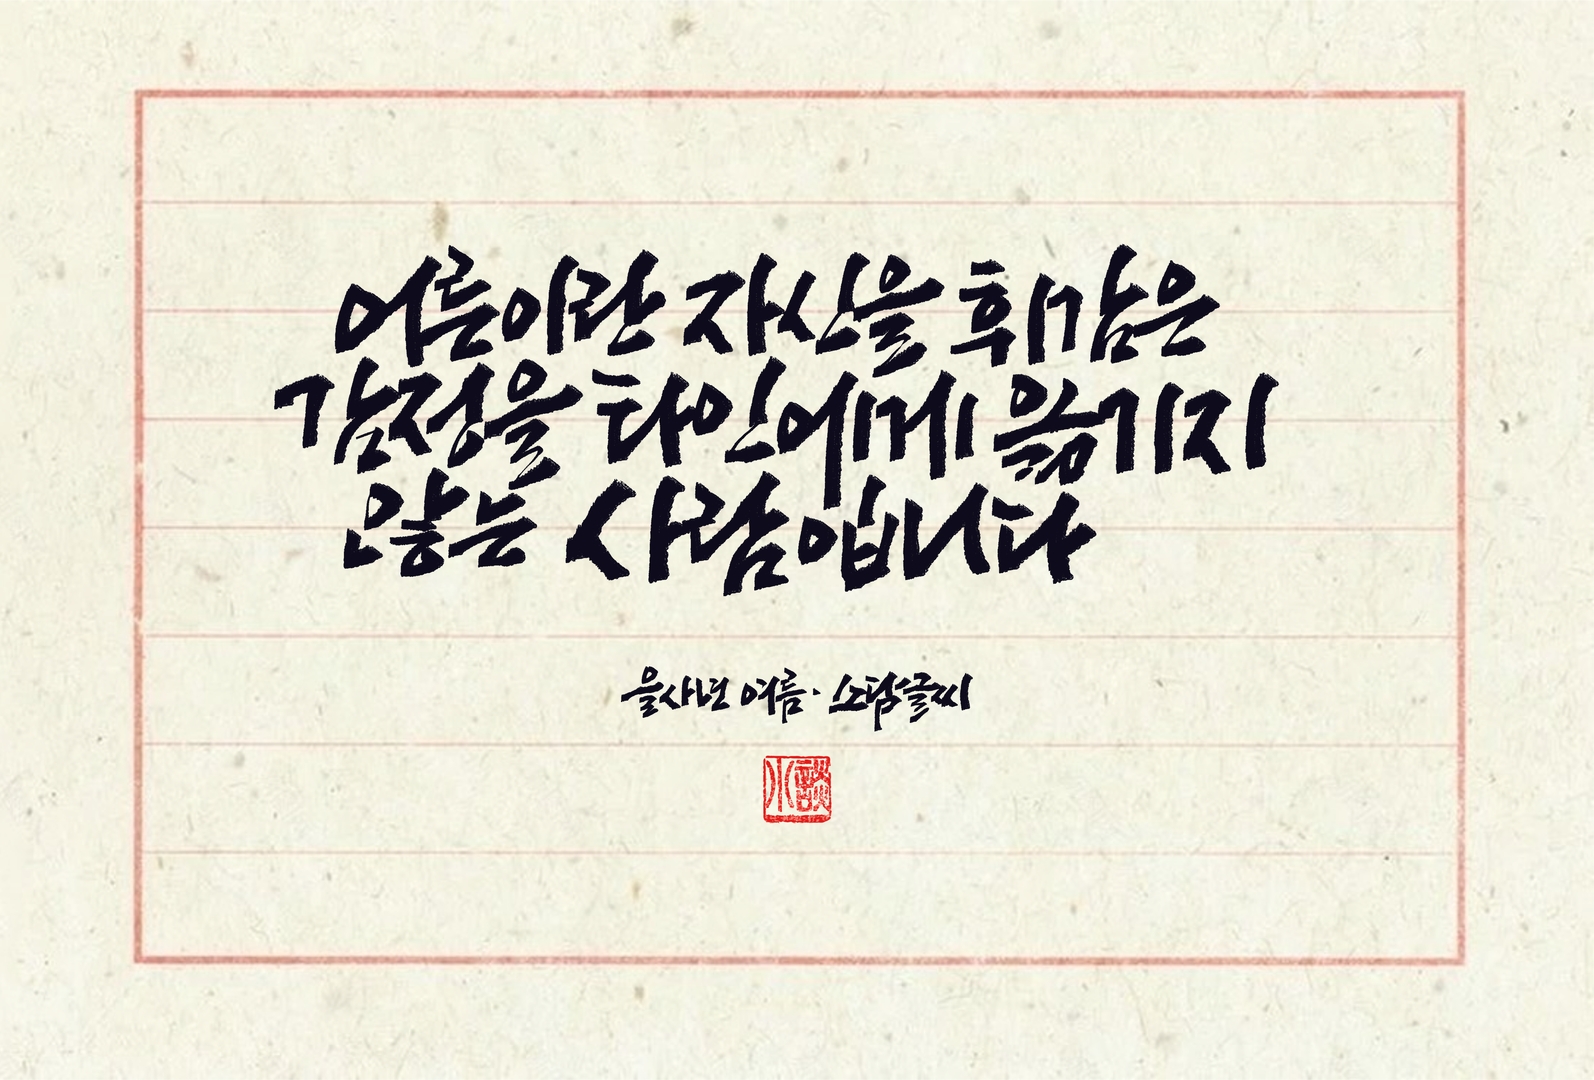 어른이란 자신을 휘감은
감정을 타인에게 옮기지
않는 사람입니다
을사년 여름·소담글씨
小談